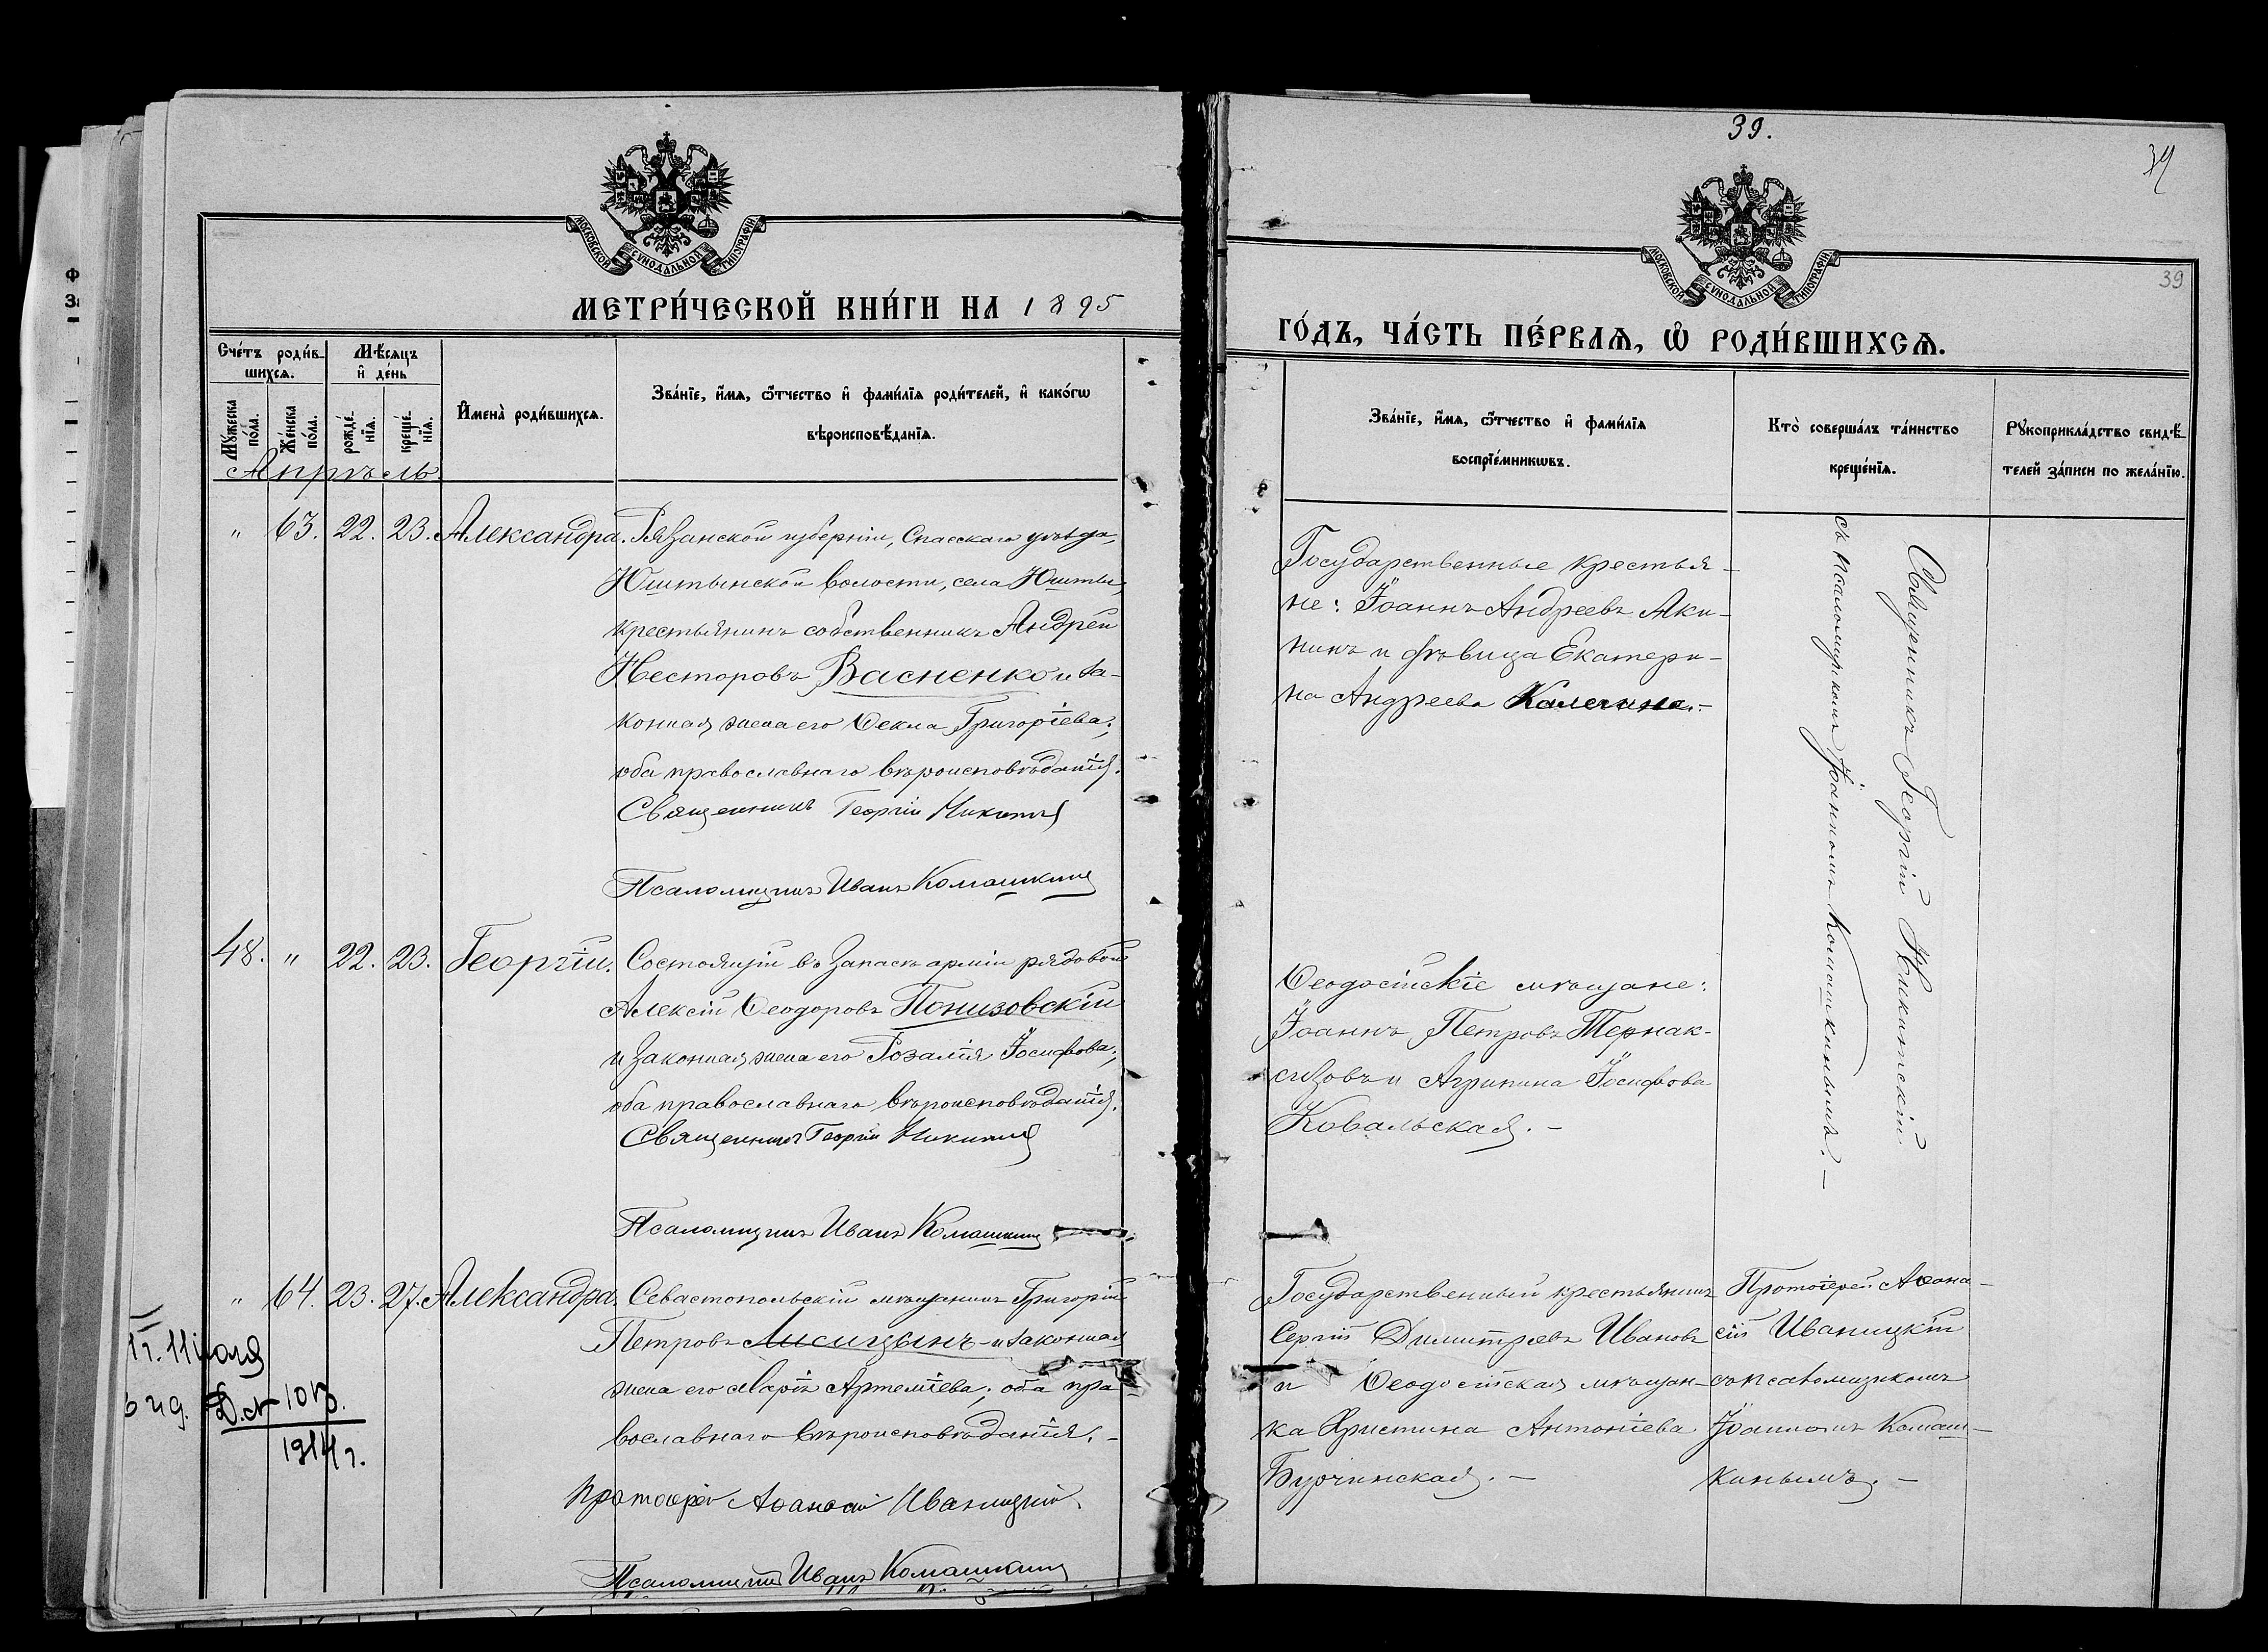 39.
39
МОСКОВСКОЙ СѴНОДАЛЬНОЙ ТИПОГРАФІИ
МЕТРИ́ЧЕСКОЙ КНИ́ГИ НА 1895
Сче́тъ роди́в-
шихсѧ.
Мѣ́сѧцъ
и҆ де́нь
Мꙋ́жеска по́ла.
Же́нска по́ла.
рожде́нїѧ.
креще́нїѧ.
И҆мена̀ роди́вшихсѧ.
Зва́нїе, и҆́мѧ, ѻ҆́тчество и҆ фами́лїѧ роди́телей, и҆ како́гѡ
вѣроисповѣ́данїѧ.
Апрѣль
" 63. 22. 23. Александра.
Рязанской губерніи, Спасскаго уѣзда,
Юштынской волости, села Юшты,
крестьянинъ собственникъ Андрей
Несторовъ Васненко и за-
конная жена его Ѳекла Григоріева;
оба православнаго вѣроисповѣданія.
Священникъ Георгій
Псаломщикъ Иванъ Комашкинъ
48. " 22. 23. Георгій.
Состоящій въ запасѣ арміи рядовой
Алексій Ѳеодоровъ Понизовскій
и законная жена его Розалія Іосифова;
оба православнаго вѣроисповѣданія.
Священникъ Георгій
Псаломщикъ Иванъ Комашкинъ
" 64. 23. 27. Александра.
Севастопольскій мѣщанинъ Григорій
Петровъ Лисицынъ и законная
жена его Марія Артеміева; оба пра-
вославнаго вѣроисповѣданія.-
Протоіерей Аѳанасій Иваницкій.
Псаломщикъ Иванъ Комашкинъ
11 іюля
1013.
1914 г.
39.
МОСКОВСКОЙ СѴНОДАЛЬНОЙ ТИПОГРАФІИ
39
ГО́ДЪ, ЧА́СТЬ ПЕ́РВАѦ, Ѡ҆ РОДИ́ВШИХСѦ.
Зва́нїе, и҆́мѧ, ѻ҆́тчество и҆ фами́лїѧ
воспрїе́мникѡвъ.
Кто̀ соверша́лъ та́инство
креще́нїѧ.
Рꙋкоприкла́дство свидѣ́-
телей за́писи по жела́нїю.
Государственные крестья-
не: Іоаннъ Андреевъ Аки-
нинъ и дѣвица Екатери-
на Андреева Калегина.-
Священникъ Георгій Никитскій
съ псаломщикомъ Іоанномъ Комашкинымъ.-
Ѳеодосійскіе мѣщане:
Іоаннъ Петровъ Тернак-
сизовъ и Агрипина Іосифова
Ковальская.-
Государственный крестьянинъ
Сергій Димитріевъ Ивановъ
и Ѳеодосійская мѣщан-
ка Христина Антоніева
Бурчинская.-
Протоіерей Аѳана-
сій Иваницкій
съ псаломщикомъ
Іоанномъ Комаш-
кинымъ.-